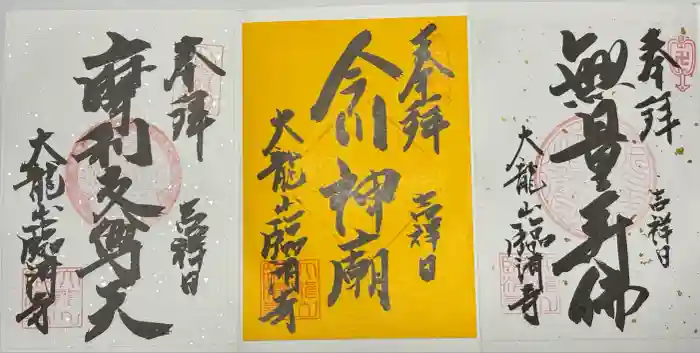 奉拝
無量寿佛
吉祥日
大龍山臨済寺
奉拝
今川神廟
吉祥日
大龍山臨済寺
奉拝
摩利支尊天
吉祥日
大龍山臨済寺